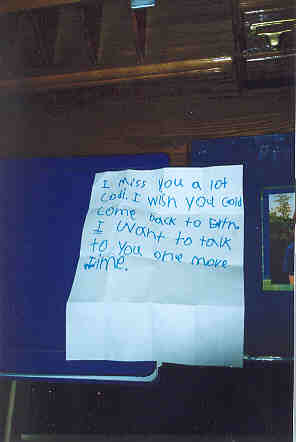 I miss you a lot
Codi. I wish you Cold
come back to Erth.
I want to talk
to you one more
time.